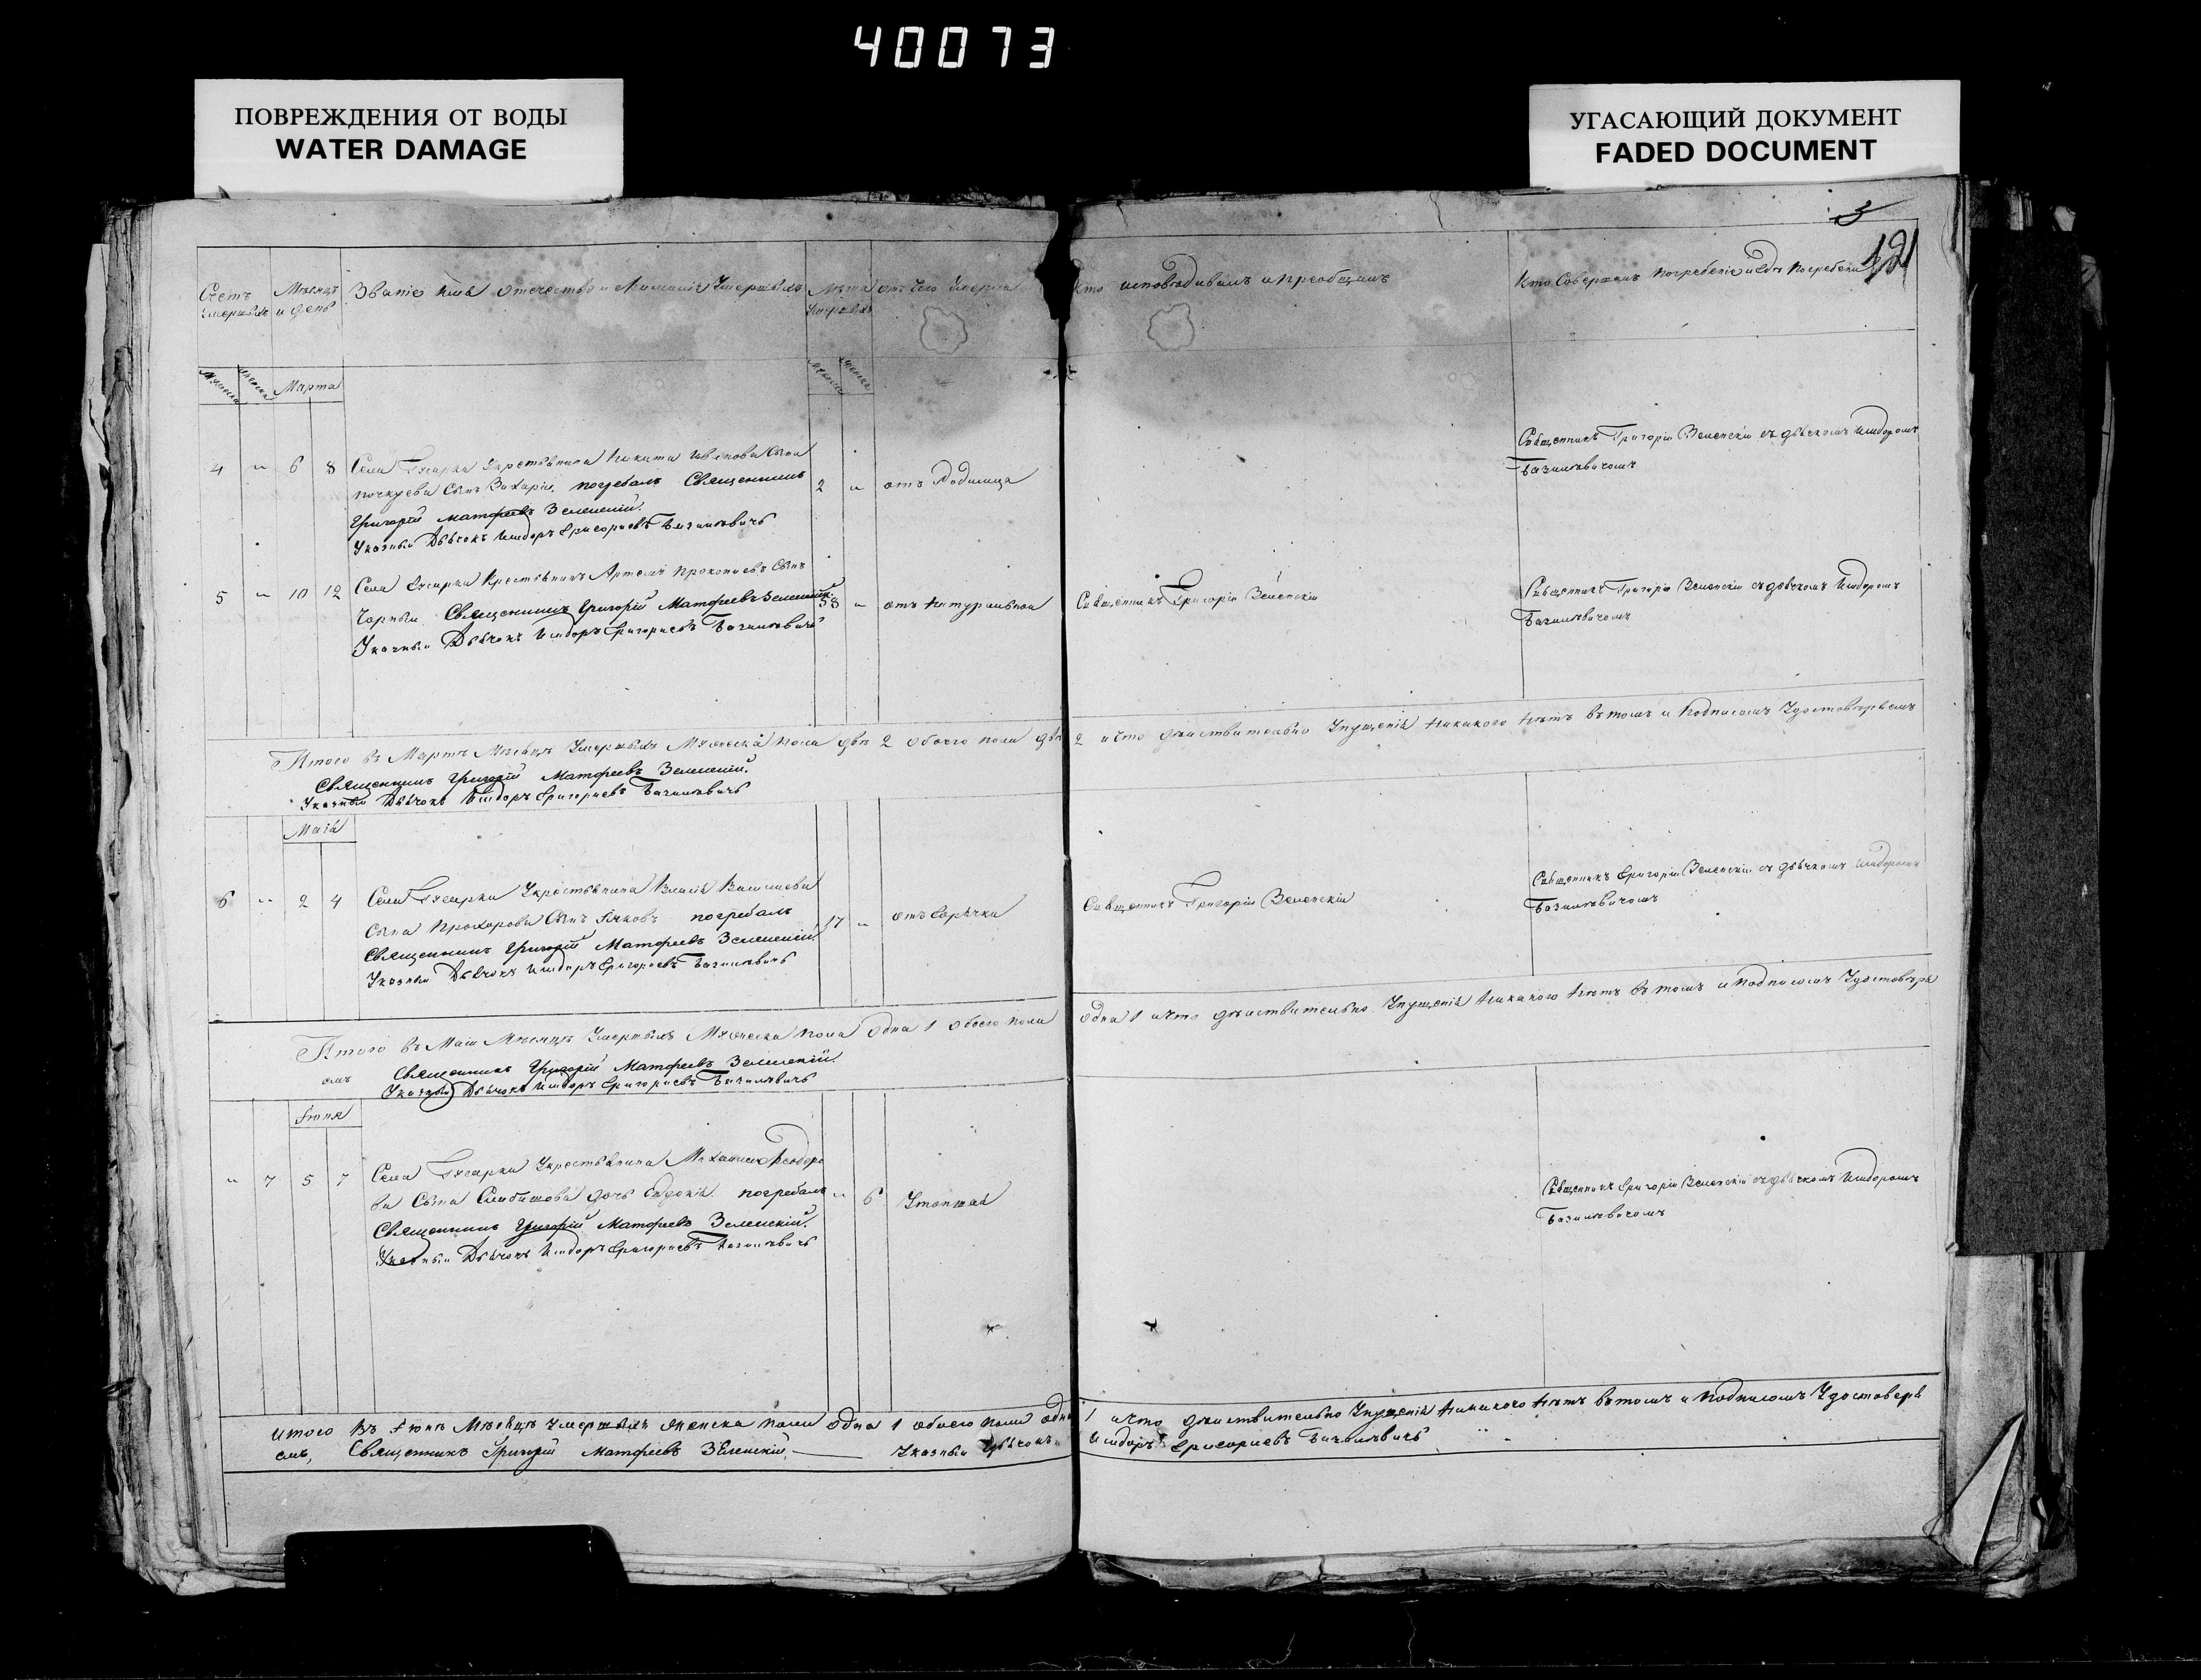 40073
ПОВРЕЖДЕНИЯ ОТ ВОДЫ
WATER DAMAGE
УГАСАЮЩИЙ ДОКУМЕНТ
FADED DOCUMENT
3
121
Счетъ умершихъ
Мѣсяцъ и день
Званіе имя отечество и Фамилія Умершихъ
Лѣта Умершихъ
отъ чего умерла
кто исповѣдивалъ и преобщилъ
кто Совершалъ погребеніе и гдѣ погребены
Мужеска
Женска
Марта
Мужеска
Женска
4 " 6 8 Села Гусарки крестьянина Никита Иванова Сына
сынъ Захарій. погребалъ Священникъ
Григорій Матфеевъ Зеленскій.
Указный Дьячокъ Исидоръ Григориевъ Базилѣвичь
2 " отъ Родимца
Священникъ Григорій Зеленскій съ дьячкомъ Исидоромъ
Базилѣвичомъ
5 " 10 12 Села Гусарки Крестьянинъ Артемъ Прокопиевъ Сынъ
Чорный. Священникъ Григорій Матфеевъ Зеленскій.
Указный Дьячокъ Исидоръ Григориевъ Базилѣвичь
58 " отъ натуральной
Священникъ Григорій Зеленскій
Священникъ Григорій Зеленскій съ дьячкомъ Исидоромъ
Базилѣвичомъ
Итого въ Мартѣ Мѣсяцѣ Умершихъ Мужеска пола два 2 обоего пола два 2 и что дѣиствительно Упущенія никакого нѣтъ въ томъ и подписомъ Удостовѣряемъ
Священникъ Григорій Матфеевъ Зеленскій.
Указный Дьячокъ Исидоръ Григориевъ Базилѣвичь
Маія
6 " 2 4 Села Гусарки Крестьянина
Сына Прохорова Сынъ погребалъ
Священникъ Григорій Матфеевъ Зеленскій.
Указный Дьячокъ Исидоръ Григориевъ Базилѣвичь
17 " отъ Горячки
Священникъ Григорій Зеленскій
Священникъ Григорій Зеленскій съ дьячкомъ Исидоромъ
Базилѣвичомъ
Итого въ Маіи Мѣсяцѣ Умершихъ Мужеска пола одна 1 обоего пола одна 1 и что дѣиствительно Упущенія никакого нѣтъ въ томъ и подписомъ Удостовѣря
емъ Священникъ Григорій Матфеевъ Зеленскій.
Указный Дьячокъ Исидоръ Григориевъ Базилѣвичь
Іюня
" 7 5 7 Села Гусарки Крестьянина Михаила Феодоро
ва Сына дочь Евдокія. погребалъ
Священникъ Григорій Матфеевъ Зеленскій.
Указный Дьячокъ Исидоръ Григориевъ Базилѣвичь
" 6 Утопшая
Священникъ Григорій Зеленскій съ дьячкомъ Исидоромъ
Базилѣвичомъ
Итого Въ Іюнѣ Мѣсяцѣ Умершихъ женска пола одна 1 обоего пола одна 1 и что дѣиствительно Упущенія никакого нѣтъ въ томъ и подписомъ Удостоверя
емъ, Священникъ Григорій Матфеевъ Зеленскій, Указный Дьячокъ Исидоръ Григориевъ Базилѣвичь